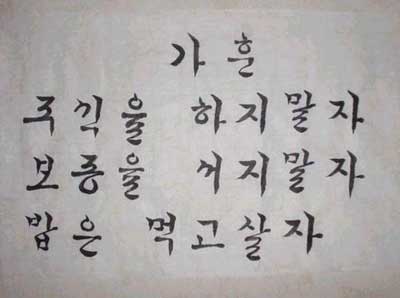 가훈
주식을 하지말자
보증을 서지말자
밥은 먹고살자